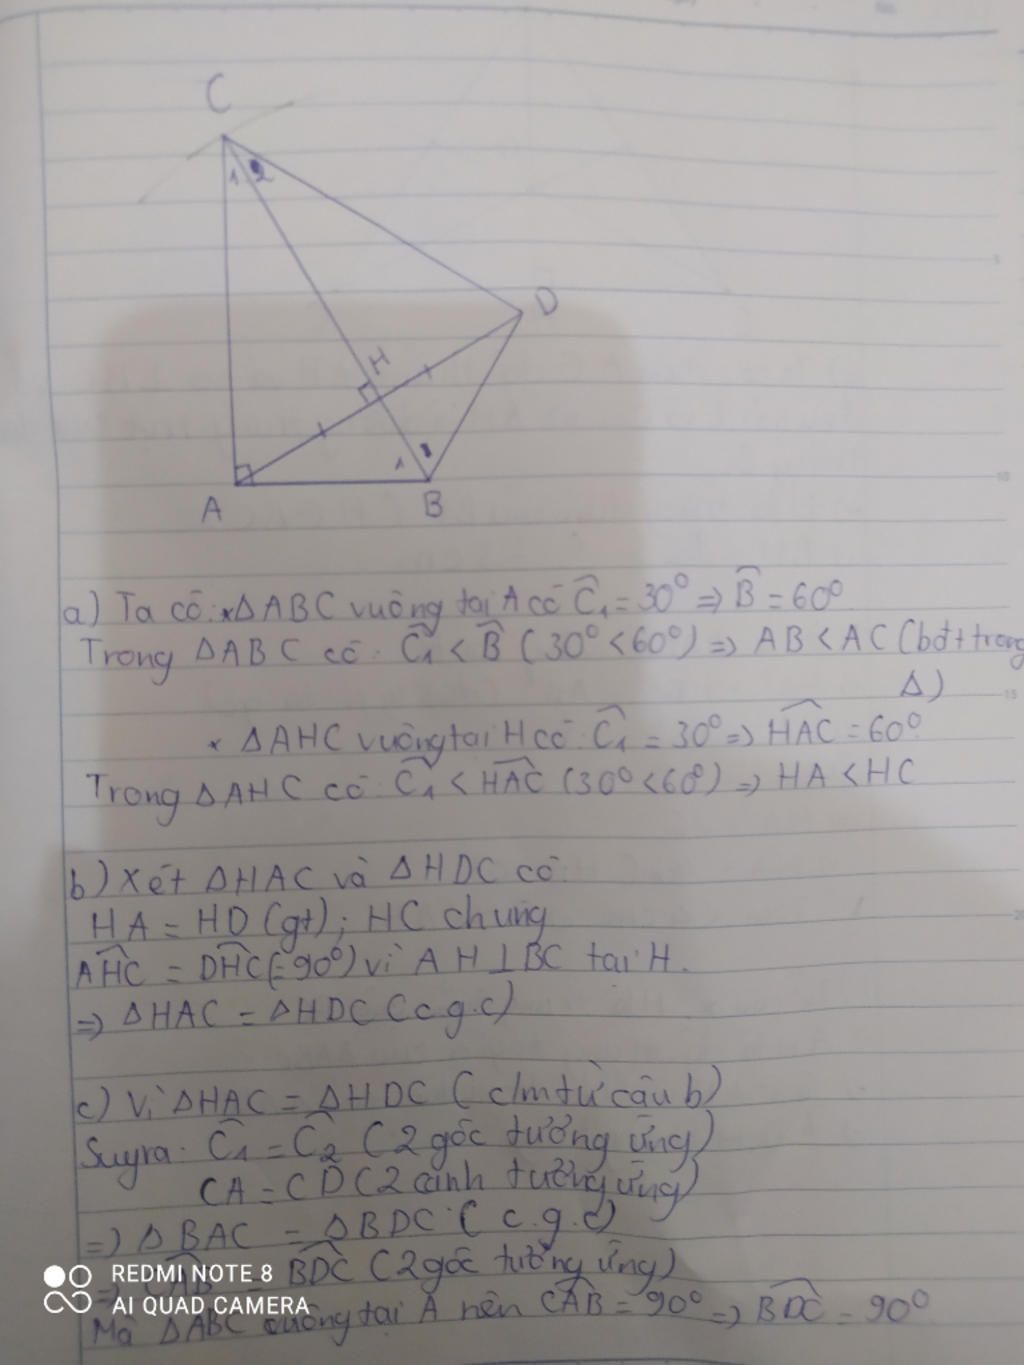 C
1 2
D
H
1
A
B
a) Ta có: * ΔABC vuông tại A có Ĉ₁ = 30° => B̂ = 60°
Trong ΔABC có: Ĉ₁ < B̂ (30° < 60°) => AB < AC (bđt trong
Δ)
* ΔAHC vuông tại H có: Ĉ₁ = 30° => HAC = 60°
Trong ΔAHC có: Ĉ₁ < HAC (30° < 60°) => HA < HC
b) Xét ΔHAC và ΔHDC có:
HA = HD (gt); HC chung
AHC = DHC (= 90°) vì AH ⊥ BC tại H.
=> ΔHAC = ΔHDC (c.g.c)
c) Vì ΔHAC = ΔHDC (c/m từ câu b)
Suy ra: Ĉ₁ = Ĉ₂ (2 góc tương ứng)
CA = CD (2 cạnh tương ứng)
=> ΔBAC = ΔBDC (c.g.c)
=> CAB = BDC (2 góc tương ứng)
Mà ΔABC vuông tại A nên CAB = 90° => BDC = 90°
REDMI NOTE 8
AI QUAD CAMERA